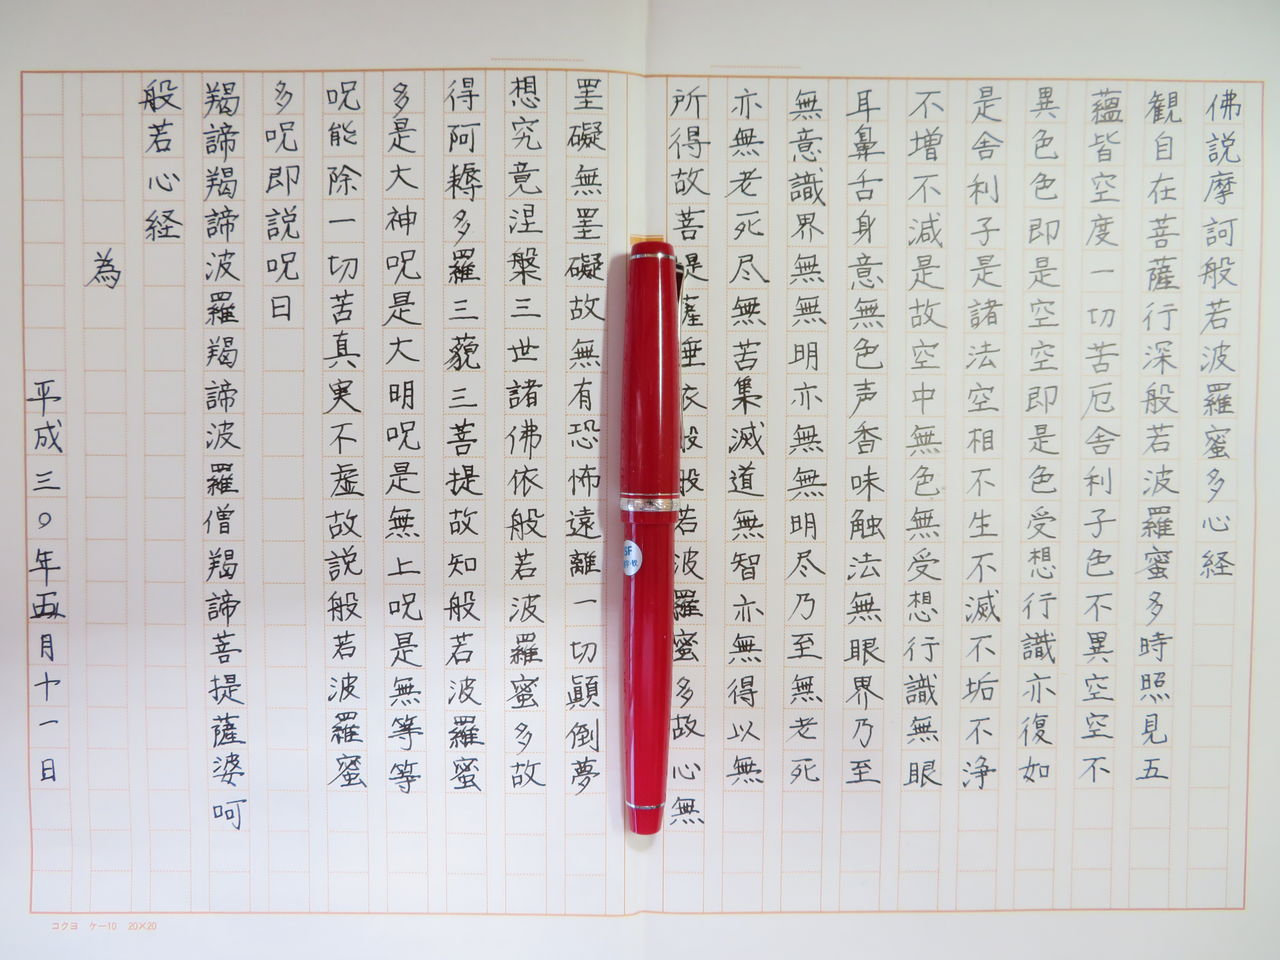 佛説摩訶般若波羅蜜多心経
観自在菩薩行深般若波羅蜜多時照見五
蘊皆空度一切苦厄舎利子色不異空空不
異色色即是空空即是色受想行識亦復如
是舎利子是諸法空相不生不滅不垢不浄
不増不減是故空中無色無受想行識無眼
耳鼻舌身意無色声香味触法無眼界乃至
無意識界無無明亦無無明尽乃至無老死
亦無老死尽無苦集滅道無智亦無得以無
所得故菩提薩埵依般若波羅蜜多故心無
罣礙無罣礙故無有恐怖遠離一切顛倒夢
想究竟涅槃三世諸佛依般若波羅蜜多故
得阿耨多羅三藐三菩提故知般若波羅蜜
多是大神呪是大明呪是無上呪是無等等
呪能除一切苦真実不虚故説般若波羅蜜
多呪即説呪曰
羯諦羯諦波羅羯諦波羅僧羯諦菩提薩婆呵
般若心経
為
平成三〇年五月十一日
コクヨ ケー10 20×20